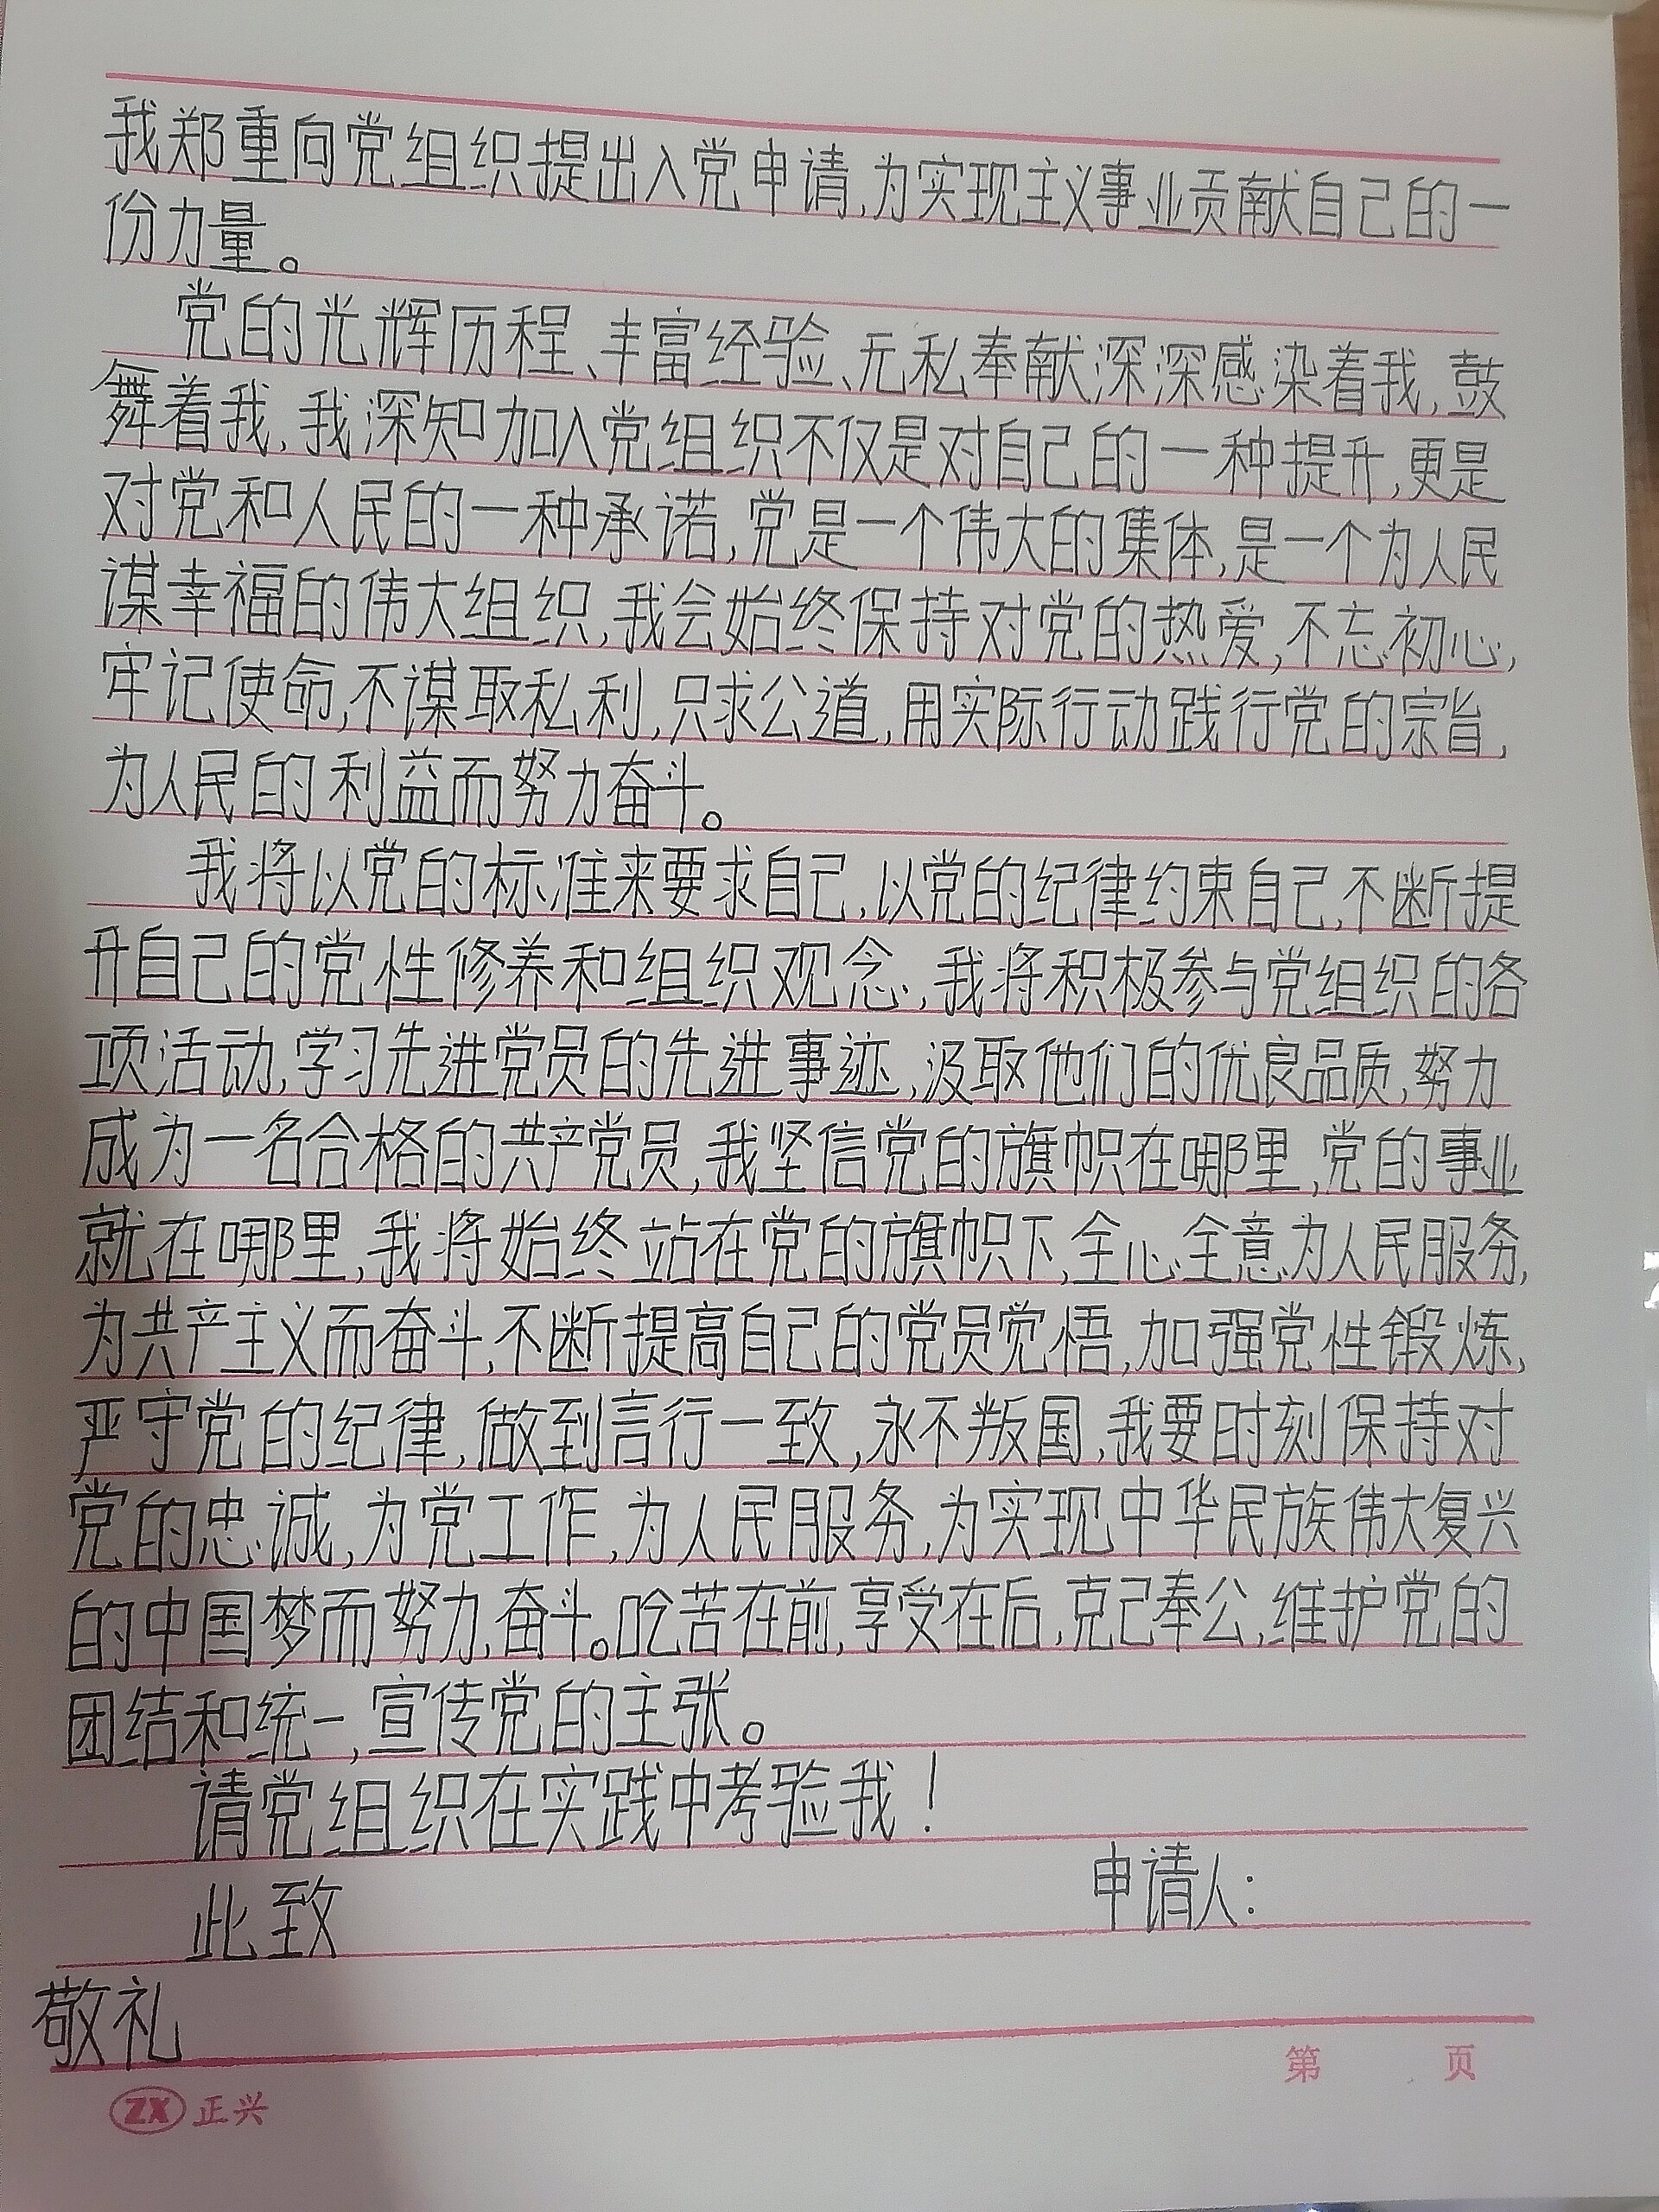 我郑重向党组织提出入党申请,为实现主义事业贡献自己的一
份力量。
党的光辉历程、丰富经验、无私奉献深深感染着我,鼓
舞着我,我深知加入党组织不仅是对自己的一种提升,更是
对党和人民的一种承诺,党是一个伟大的集体,是一个为人民
谋幸福的伟大组织,我会始终保持对党的热爱,不忘初心,
牢记使命,不谋取私利,只求公道,用实际行动践行党的宗旨,
为人民的利益而努力奋斗。
我将以党的标准来要求自己,以党的纪律约束自己,不断提
升自己的党性修养和组织观念,我将积极参与党组织的各
项活动,学习先进党员的先进事迹,汲取他们的优良品质,努力
成为一名合格的共产党员,我坚信党的旗帜在哪里,党的事业
就在哪里,我将始终站在党的旗帜下,全心全意为人民服务,
为共产主义而奋斗,不断提高自己的党员觉悟,加强党性锻炼,
严守党的纪律,做到言行一致,永不叛国,我要时刻保持对
党的忠诚,为党工作,为人民服务,为实现中华民族伟大复兴
的中国梦而努力奋斗。吃苦在前,享受在后,克己奉公,维护党的
团结和统一,宣传党的主张。
请党组织在实践中考验我!
申请人:
此致
敬礼
第 页
ZX 正兴